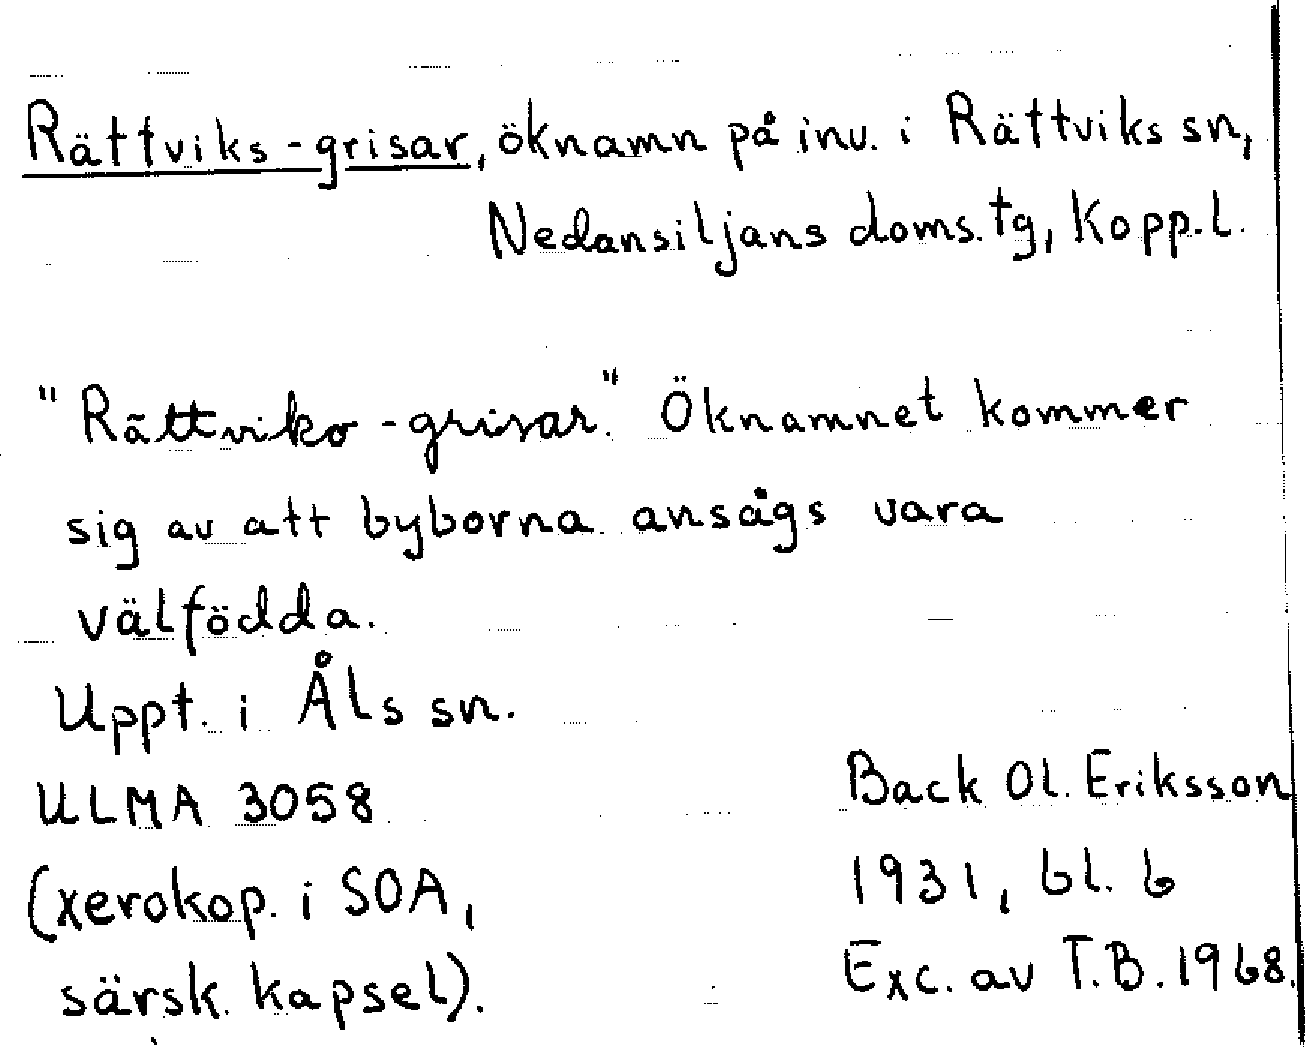 Rättviks-grisar, öknamn på inv. i Rättviks sn,
Nedansiljans doms. tg, Kopp. l.
"Rättviks-grisar." Öknamnet kommer
sig av att byborna ansågs vara
välfödda.
Uppt. i Åls sn.
ULMA 3058
(xerokop. i SOA,
särsk. kapsel).
Back Ol. Eriksson
1931, bl. 6
Exc. av T.B. 1968.